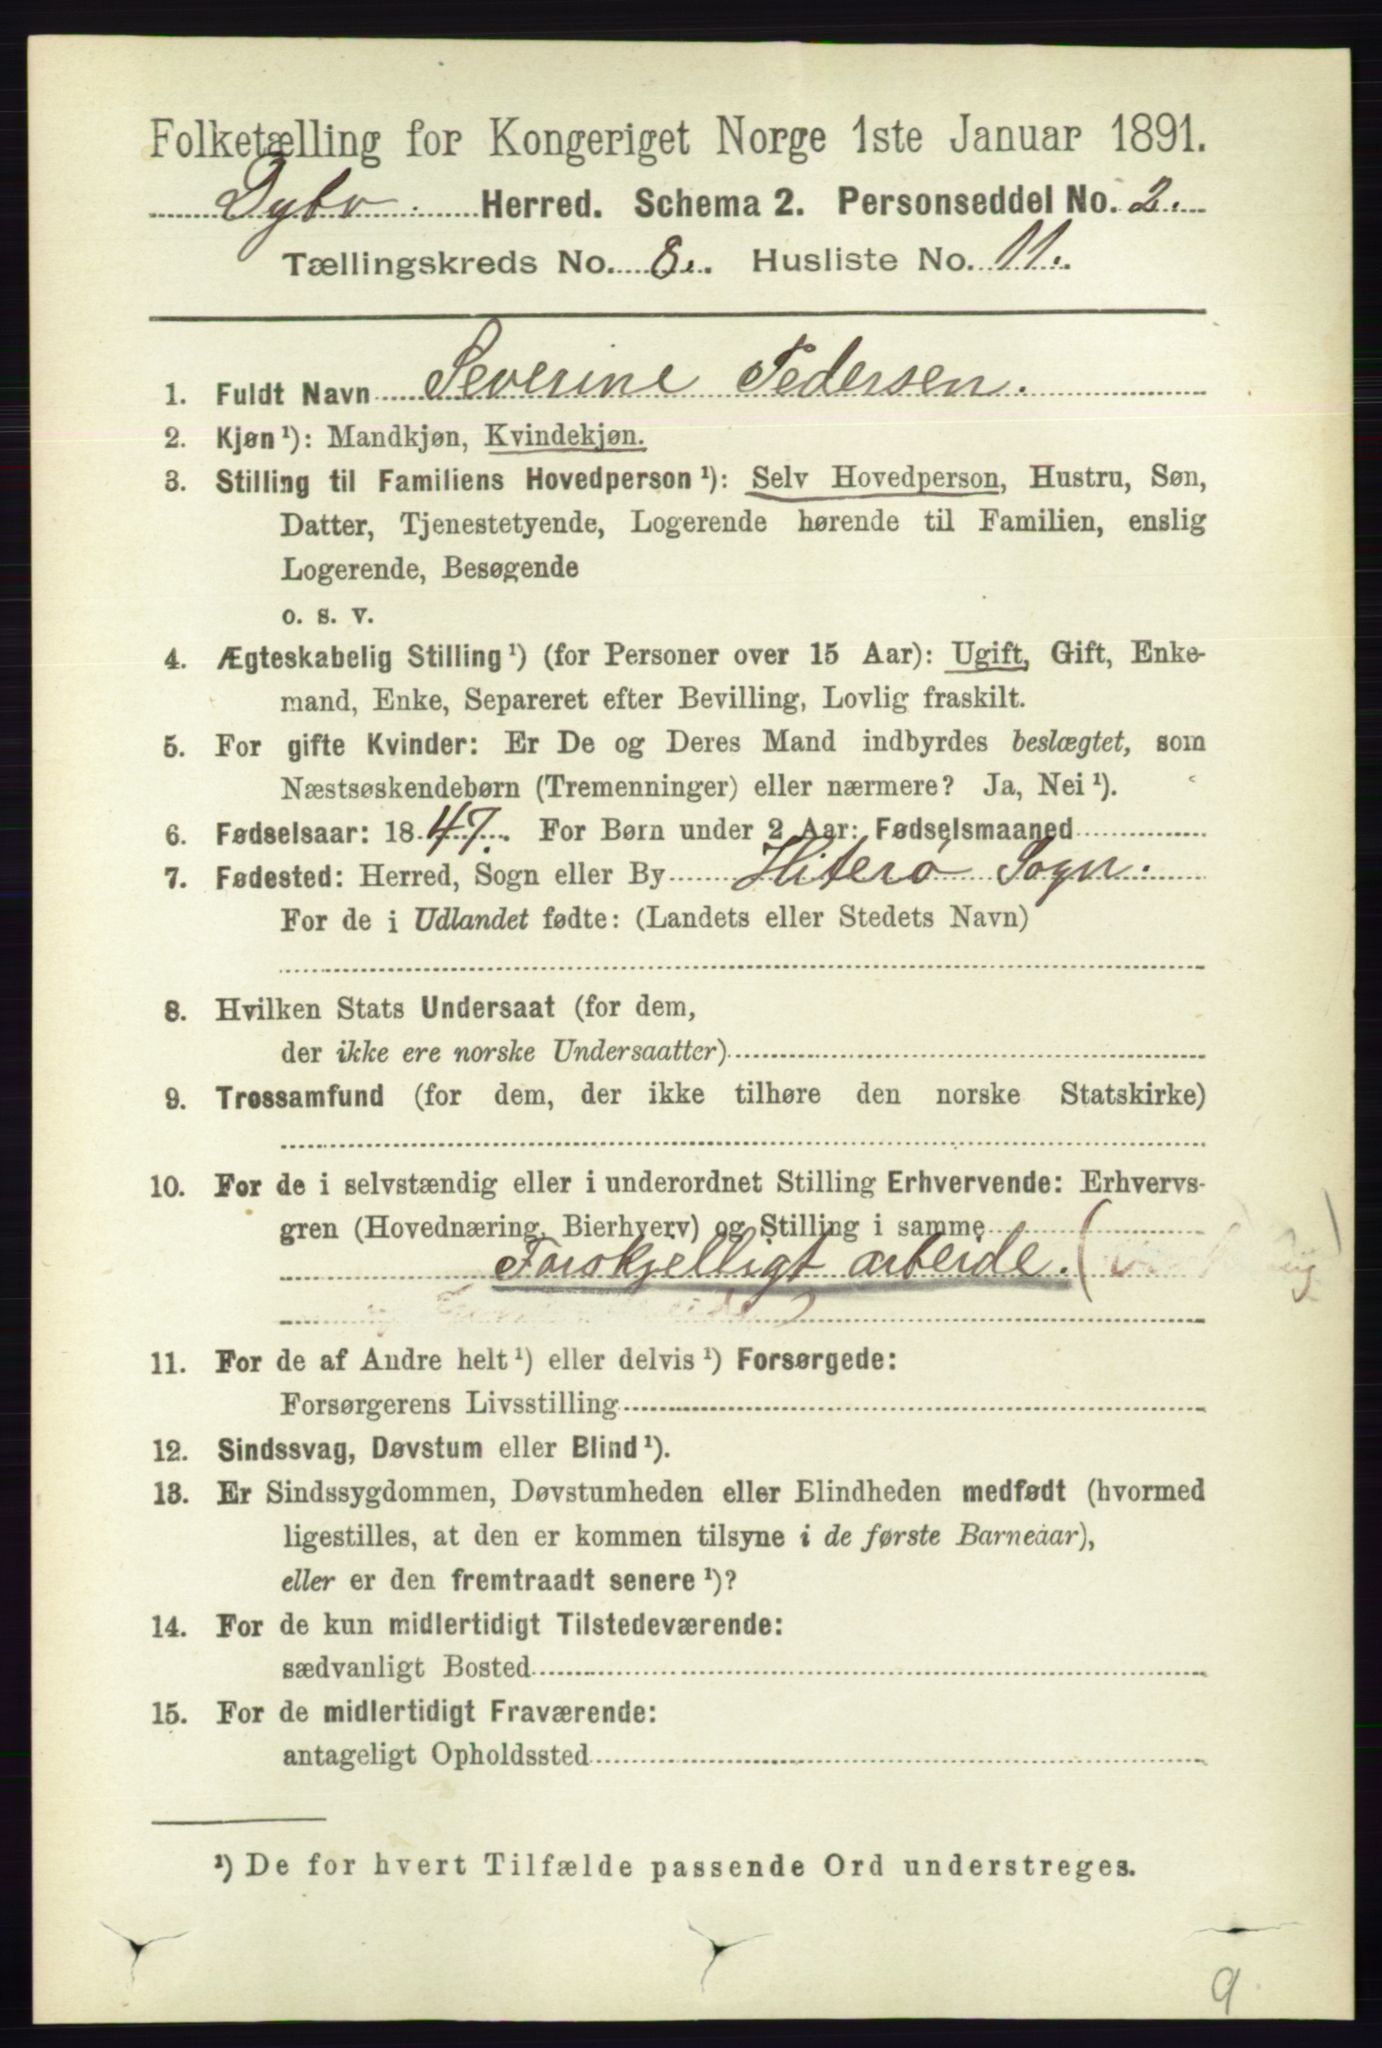 Folketælling for Kongeriget Norge 1ste Januar 1891.
Dybv. Herred. Schema 2. Personseddel No. 2.
Tællingskreds No. 8. Husliste No. 11.
1. Fuldt Navn Severine Pedersen.
2. Kjøn¹): Mandkjøn, Kvindekjøn.
3. Stilling til Familiens Hovedperson¹): Selv Hovedperson, Hustru, Søn,
Datter, Tjenestetyende, Logerende hørende til Familien, enslig
Logerende, Besøgende
o. s. v.
4. Ægteskabelig Stilling¹) (for Personer over 15 Aar): Ugift, Gift, Enke-
mand, Enke, Separeret efter Bevilling, Lovlig fraskilt.
5. For gifte Kvinder: Er De og Deres Mand indbyrdes beslægtet, som
Næstsøskendebørn (Tremenninger) eller nærmere? Ja, Nei¹).
6. Fødselsaar: 1847. For Børn under 2 Aar: Fødselsmaaned
7. Fødested: Herred, Sogn eller By Hiterø Sogn.
For de i Udlandet fødte: (Landets eller Stedets Navn)
8. Hvilken Stats Undersaat (for dem,
der ikke ere norske Undersaatter)
9. Trossamfund (for dem, der ikke tilhøre den norske Statskirke)
10. For de i selvstændig eller i underordnet Stilling Erhvervende: Erhvervs-
gren (Hovednæring, Bierhverv) og Stilling i samme
Forskjelligt arbeide. (
11. For de af Andre helt¹) eller delvis¹) Forsørgede:
Forsørgerens Livsstilling
12. Sindssvag, Døvstum eller Blind¹).
13. Er Sindssygdommen, Døvstumheden eller Blindheden medfødt (hvormed
ligestilles, at den er kommen tilsyne i de første Barneaar),
eller er den fremtraadt senere¹)?
14. For de kun midlertidigt Tilstedeværende:
sædvanligt Bosted
15. For de midlertidigt Fraværende:
antageligt Opholdssted
¹) De for hvert Tilfælde passende Ord understreges.
9